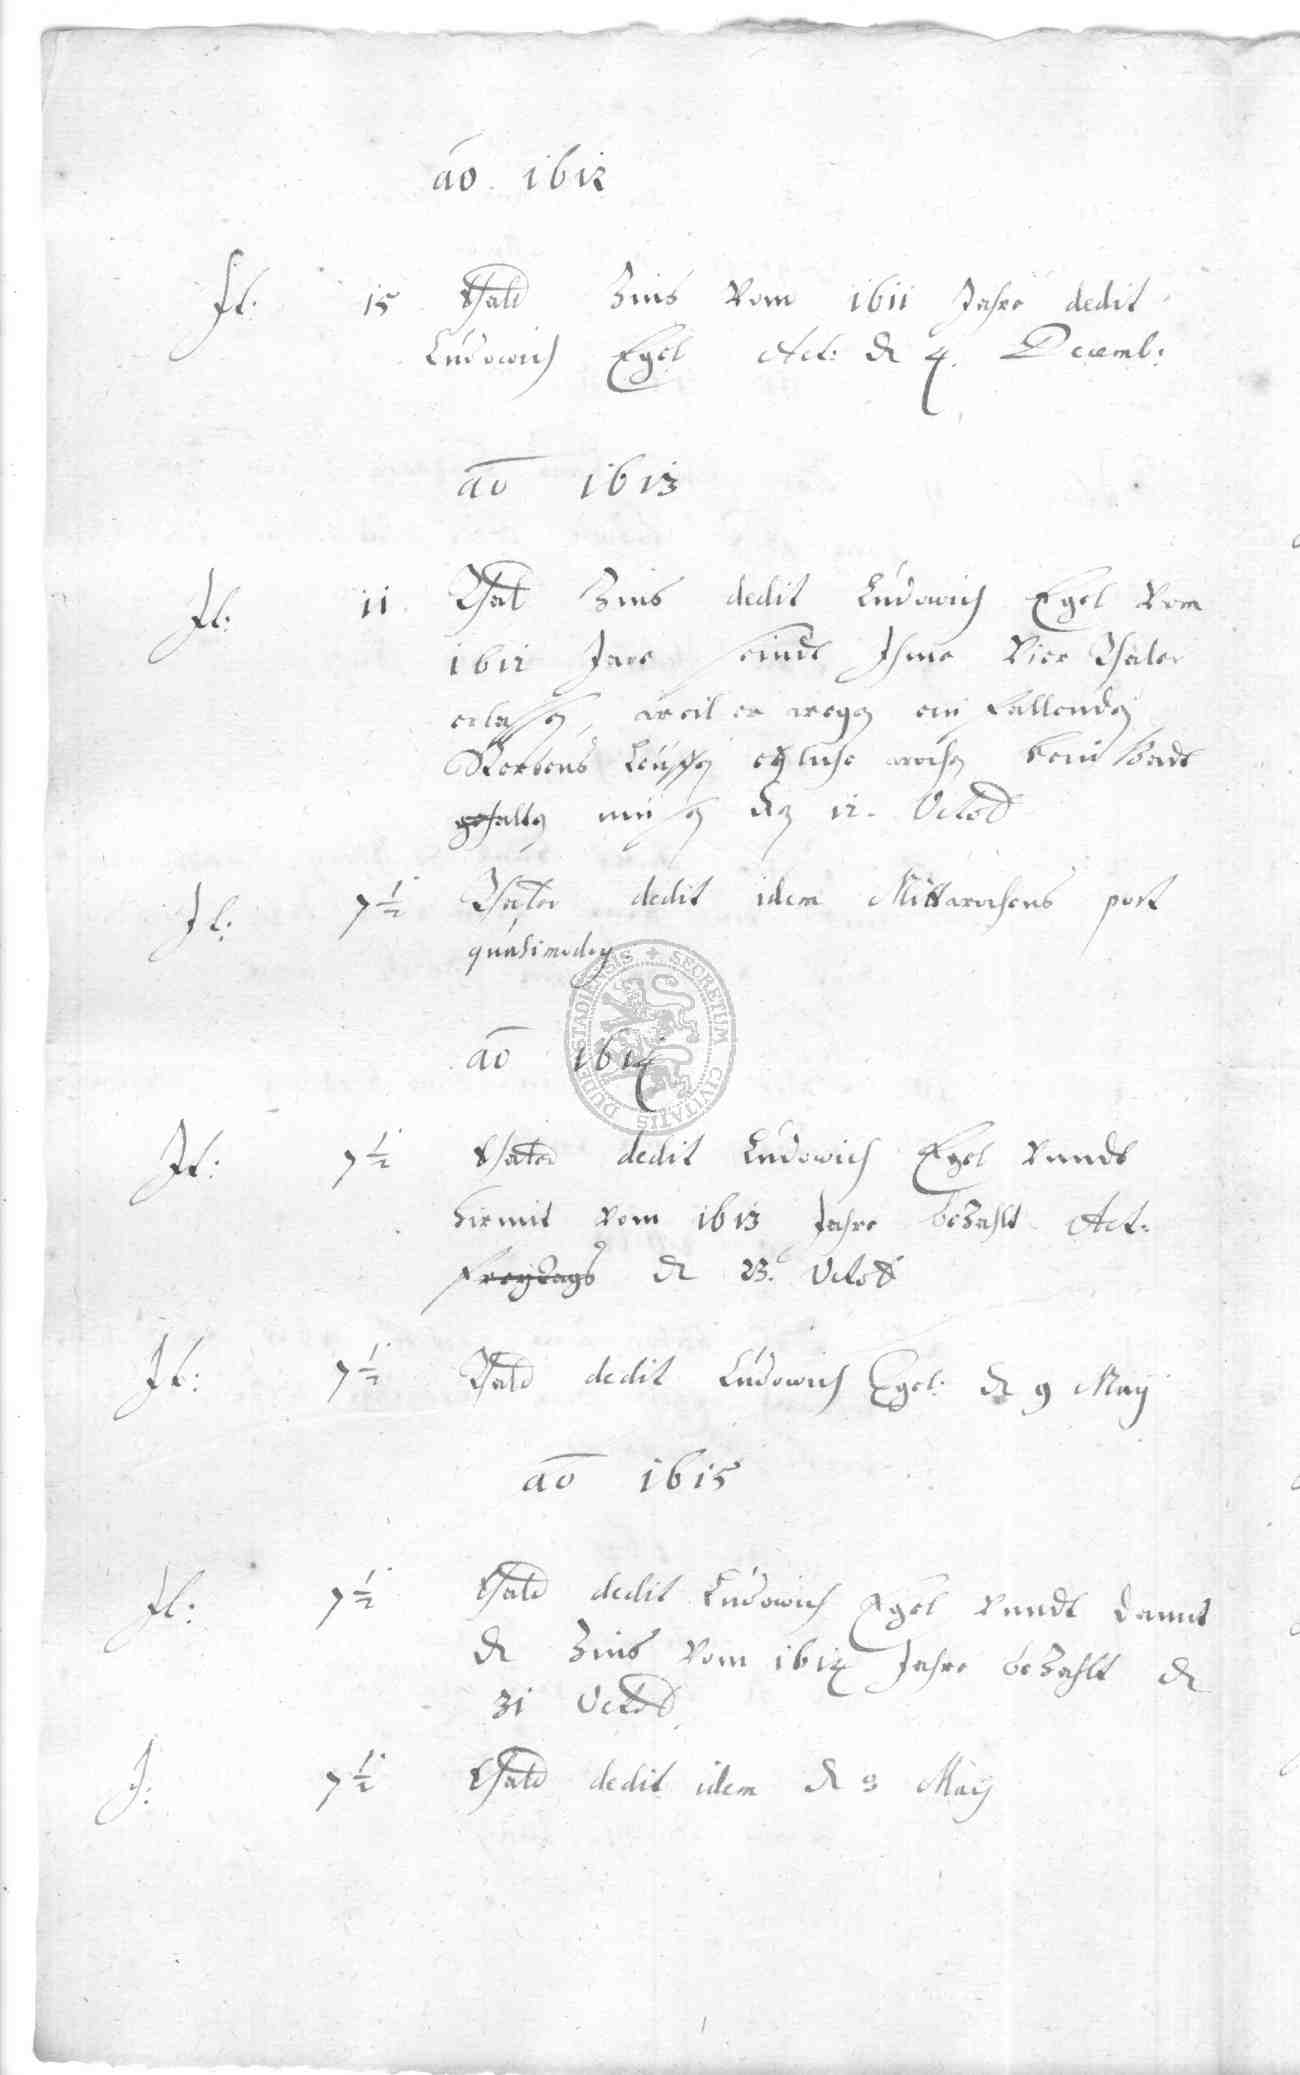 ao. 1612
It: 15 thald Zins vom 1611 Jahre dedit
Ludowich Egel Act: d 4. Decemb:
ao 1613
It: 11 Thal Zins dedit Ludowich Egel vom
1612 Jare seindt Ihme vier Thaler
erlassen, weil er wegen ein fallenden
Sterbens etzliche wochen kein Badt
gehalten den 12. Octob
It: 7½ Thaler dedit idem Mittwochens post
quasimodog
ao 1614
It: 7½ thaler dedit Ludowich Egel vnndt
hirmit vom 1613 Jahre bezahlt Act:
freytags d 23. Octob
It: 7½ Thald dedit Ludowich Egel: d 9 Maij
ao 1615
It: 7½ thald dedit Ludowich Egel vnndt damit
d Zins vom 1614 Jahre bezahlt d
31 Octob
I: 7½ thald dedit idem d 3 Maij
SECRETUM CIVITATIS DUDERSTADIENSIS